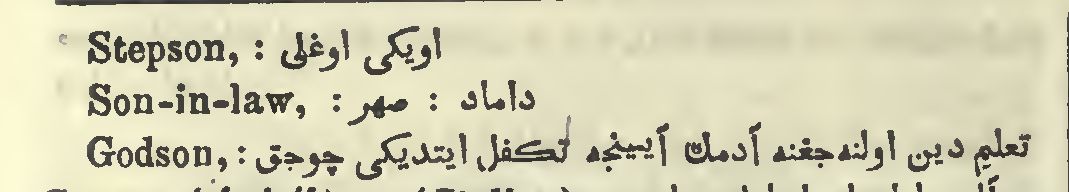 Stepson, : اویکی اوغلی
Son-in-law, : داماد : صهر
Godson, : تعلیم دین اولنه‌جغنه آدمك آیینجه تكفل ایتدیکی چوجق